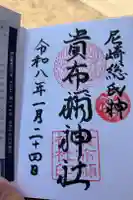 尼崎総氏神
貴布禰神社
令和八年一月二十四日